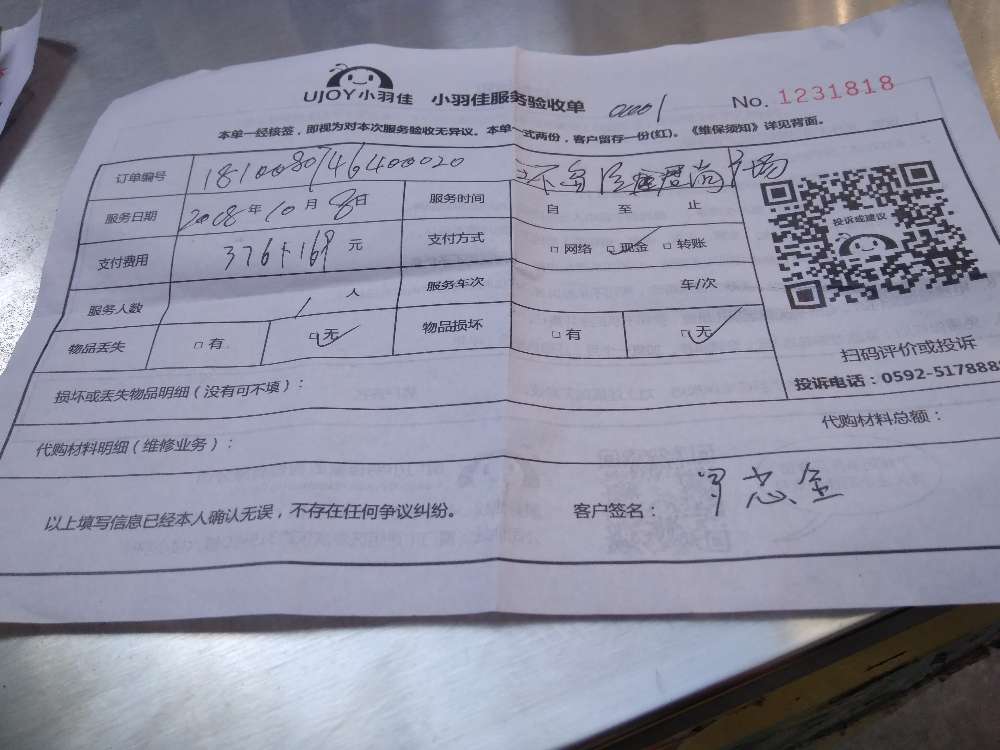 UJOY小羽佳 小羽佳服务验收单 0001 No. 1231818
本单一经核签，即视为对本次服务验收无异议。本单一式两份，客户留存一份(红)。《维保须知》详见背面。
订单编号 1810080746400020
服务日期 2018年10月8日 服务时间 自 至 止
投诉或建议
支付费用 376+168 元 支付方式 □网络 □✓现金 □转账
服务人数 1 人 服务车次 车/次
物品丢失 □有 □✓无 物品损坏 □有 □✓无
扫码评价或投诉
损坏或丢失物品明细（没有可不填）： 投诉电话：0592-517888
代购材料明细（维修业务）： 代购材料总额：
以上填写信息已经本人确认无误，不存在任何争议纠纷。 客户签名：